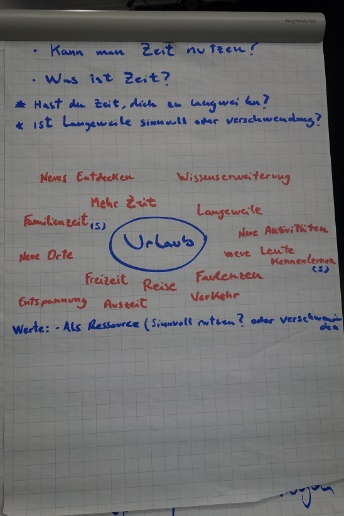 · Kann man Zeit nutzen?
· Was ist Zeit?
* Hast du Zeit, dich zu langweilen?
* ist Langeweile sinnvoll oder verschwendung?
Neues Entdecken Wissenserweiterung
Mehr Zeit Langeweile
Familienzeit (5) Neue Aktivitäten
Urlaub
Neue Orte neue Leute
Kennenlernen
(5)
Freizeit Reise Faulenzen
Entspannung Auszeit Verkehr
Werte: - Als Ressource (Sinnvoll nutzen? oder verschwen
den